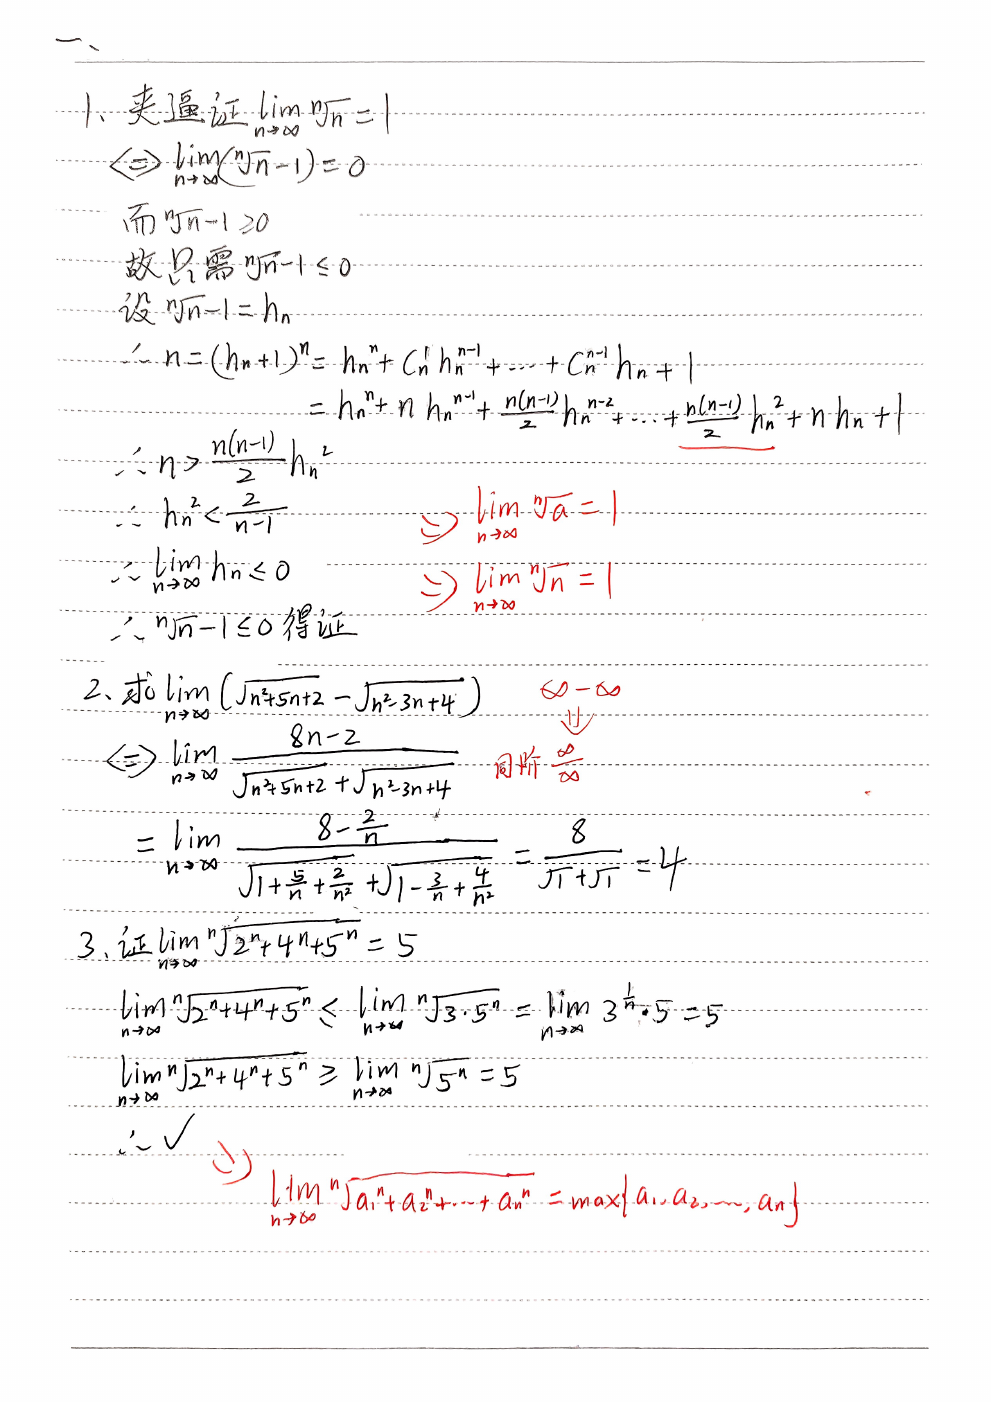 一、
1、夹逼证 lim_{n→∞} ⁿ√n = 1
<=> lim_{n→∞} (ⁿ√n - 1) = 0
而 ⁿ√n - 1 ≥ 0
故只需 ⁿ√n - 1 ≤ 0
设 ⁿ√n - 1 = hₙ
∴ n = (hₙ + 1)ⁿ = hₙⁿ + Cₙ¹ hₙⁿ⁻¹ + … + Cₙⁿ⁻¹ hₙ + 1
= hₙⁿ + n hₙⁿ⁻¹ + n(n-1)/2 hₙⁿ⁻² + … + n(n-1)/2 hₙ² + n hₙ + 1
∴ n > n(n-1)/2 hₙ²
∴ hₙ² < 2/(n-1)
=> lim_{n→∞} ⁿ√a = 1
∴ lim_{n→∞} hₙ ≤ 0
=> lim_{n→∞} ⁿ√n = 1
∴ ⁿ√n - 1 ≤ 0 得证
2、求 lim_{n→∞} (√(n²+5n+2) - √(n²-3n+4))
∞ - ∞
⇓
<=> lim_{n→∞} (8n-2)/(√(n²+5n+2) + √(n²-3n+4))
同阶 ∞/∞
= lim_{n→∞} (8 - 2/n)/(√(1 + 5/n + 2/n²) + √(1 - 3/n + 4/n²)) = 8/(√1 + √1) = 4
3、证 lim_{n→∞} ⁿ√(2ⁿ+4ⁿ+5ⁿ) = 5
lim_{n→∞} ⁿ√(2ⁿ+4ⁿ+5ⁿ) ≤ lim_{n→∞} ⁿ√(3·5ⁿ) = lim_{n→∞} 3^{1/n}·5 = 5
lim_{n→∞} ⁿ√(2ⁿ+4ⁿ+5ⁿ) ≥ lim_{n→∞} ⁿ√(5ⁿ) = 5
∴ ✓
=> lim_{n→∞} ⁿ√(a₁ⁿ+a₂ⁿ+…+aₙⁿ) = max{a₁, a₂, …, aₙ}